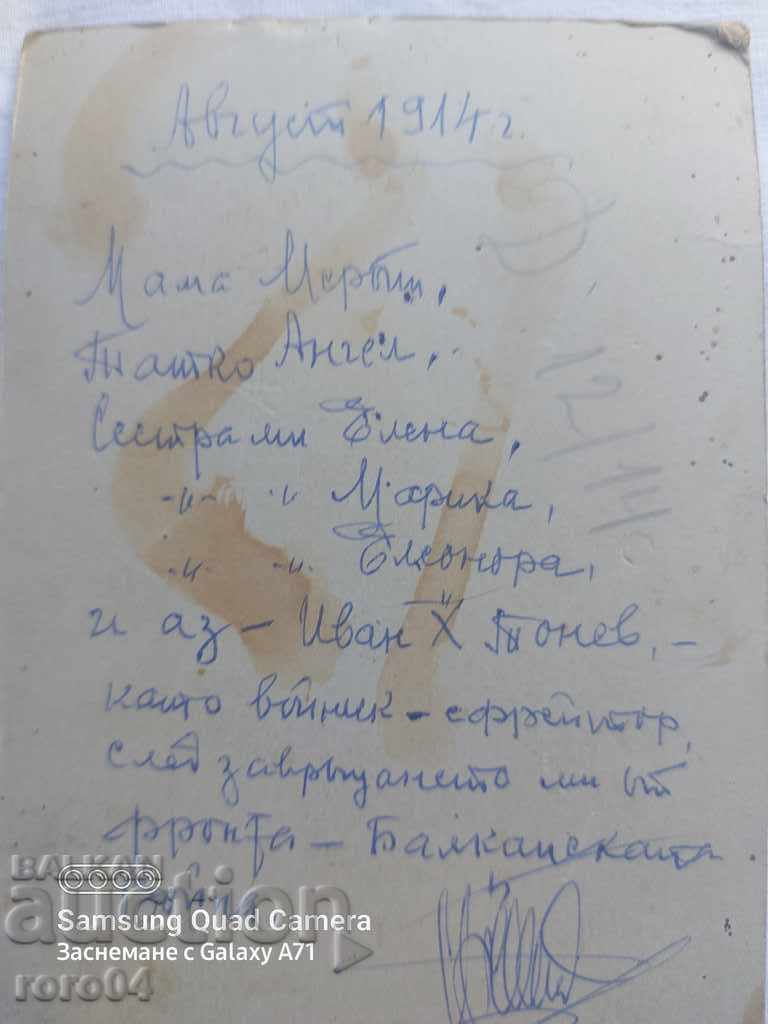 Август 1914 г.
Мама
Татко Ангел,
Сестра ми Елена,
-"- -"- Марика,
-"- -"- Елеонора,
и аз – Иван Х Тонев, –
като войник – ефрейтор,
след завръщането ми от
фронта – Балканската
12/14
BALKAN
auction
roro04
Samsung Quad Camera
Заснемане с Galaxy A71